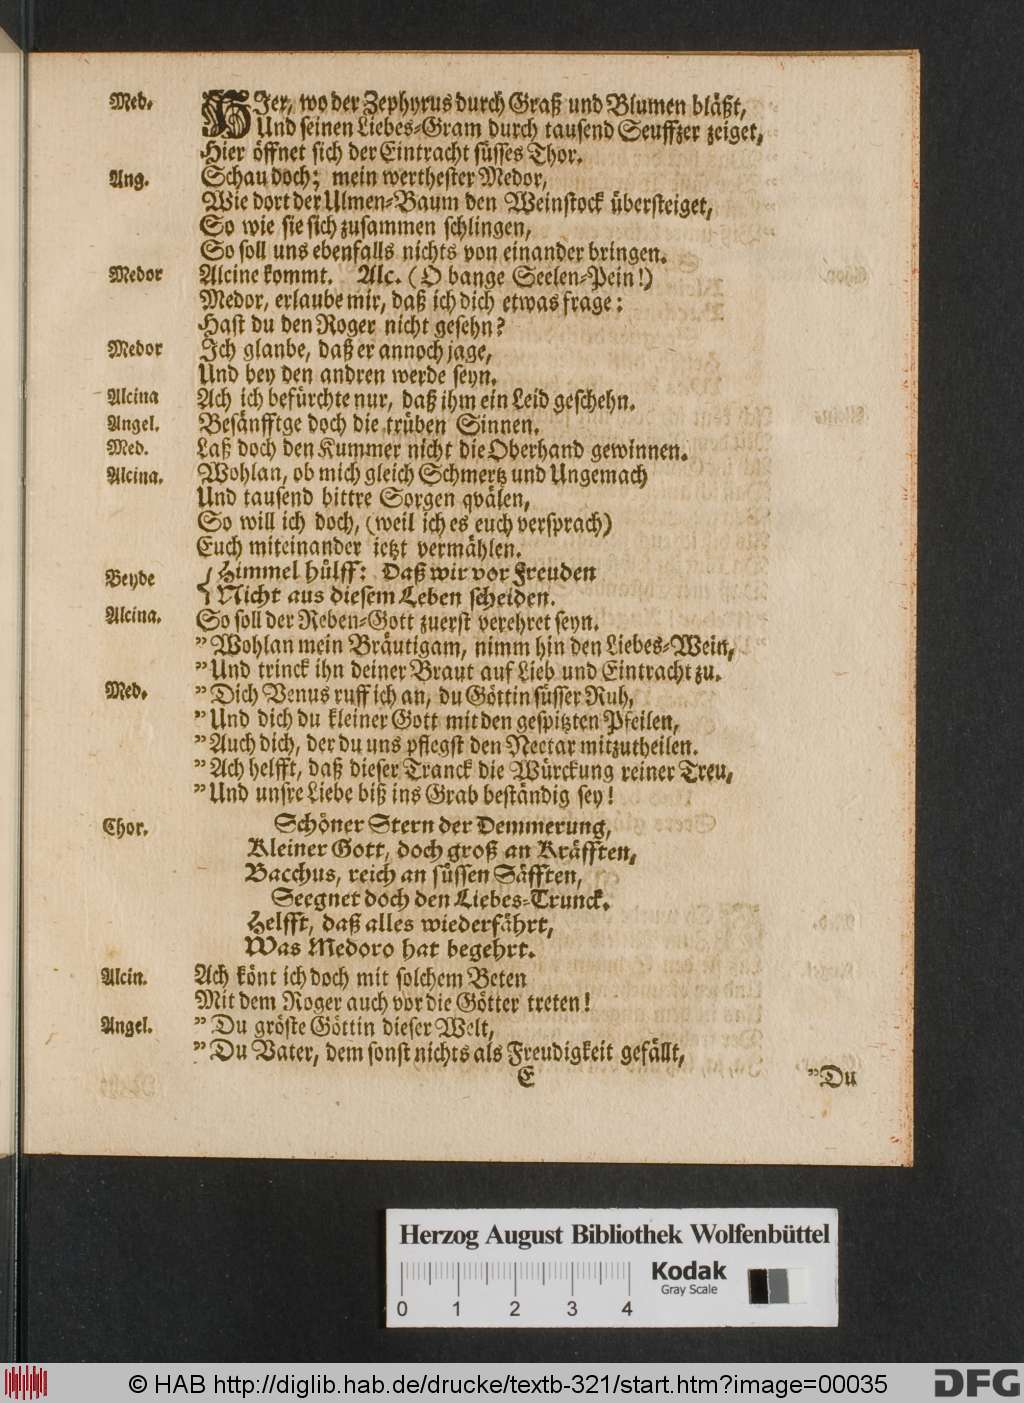 Med. HIer, wo der Zephyrus durch Graß und Blumen bläßt,
Und seinen Liebes-Gram durch tausend Seuffzer zeiget,
Hier öffnet sich der Eintracht süsses Thor.
Ang. Schau doch; mein werthester Medor,
Wie dort der Ulmen-Baum den Weinstock übersteiget,
So wie sie sich zusammen schlingen,
So soll uns ebenfalls nichts von einander bringen.
Medor Alcine kommt. Alc. (O bange Seelen-Pein!)
Medor, erlaube mir, daß ich dich etwas frage:
Hast du den Roger nicht gesehn?
Medor Ich glanbe, daß er annoch jage,
Und bey den andren werde seyn.
Alcina Ach ich befürchte nur, daß ihm ein Leid geschehn.
Angel. Besänfftge doch die trüben Sinnen.
Med. Laß doch den Kummer nicht die Oberhand gewinnen.
Alcina. Wohlan, ob mich gleich Schmertz und Ungemach
Und tausend bittre Sorgen qvälen,
So will ich doch, (weil ich es euch versprach)
Euch miteinander ietzt vermählen.
Beyde { Himmel hülff: Daß wir vor Freuden
Nicht aus diesem Leben scheiden.
Alcina. So soll der Reben-Gott zuerst verehret seyn.
" Wohlan mein Bräutigam, nimm hin den Liebes-Wein,
" Und trinck ihn deiner Braut auf Lieb und Eintracht zu.
Med. " Dich Venus ruff ich an, du Göttin süsser Ruh,
" Und dich du kleiner Gott mit den gespitzten Pfeilen,
" Auch dich, der du uns pflegst den Nectar mitzutheilen.
" Ach helfft, daß dieser Tranck die Würckung reiner Treu,
" Und unsre Liebe biß ins Grab beständig sey!
Chor. Schöner Stern der Demmerung,
Kleiner Gott, doch groß an Kräfften,
Bacchus, reich an süssen Säfften,
Seegnet doch den Liebes-Trunck.
Helfft, daß alles wiederfährt,
Was Medoro hat begehrt.
Alcin. Ach könt ich doch mit solchem Beten
Mit dem Roger auch vor die Götter treten!
Angel. " Du gröste Göttin dieser Welt,
" Du Vater, dem sonst nichts als Freudigkeit gefällt,
E "Du
Herzog August Bibliothek Wolfenbüttel
Kodak
Gray Scale
0 1 2 3 4
© HAB http://diglib.hab.de/drucke/textb-321/start.htm?image=00035
DFG